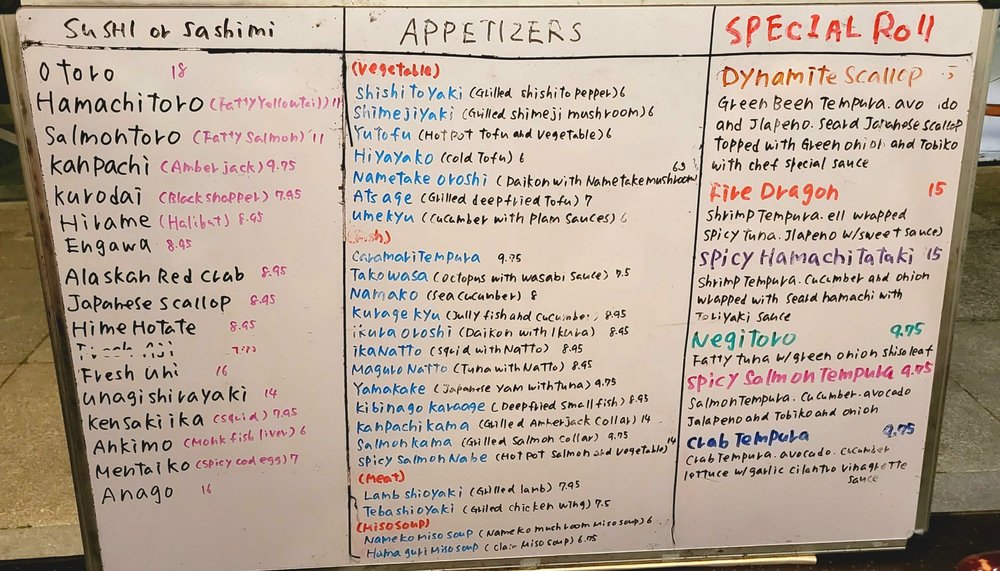 SuSHI or Sashimi
Otoro 18
Hamachitoro (Fatty Yellowtail) 11
Salmontoro (Fatty Salmon) 11
Kanpachi (Amberjack) 9.75
kurodai (Blacksnapper) 7.95
Hirame (Halibat) 8.95
Engawa 8.95
Alaskan Red Crab 8.95
Japanese scallop 8.95
Hime Hotate 8.95
Fresh Uni 16
unagishirayaki 14
kensakiika (squid) 7.95
Ankimo (Monkfish liver) 6
Mentaiko (spicy cod egg) 7
Anago 16
APPETIZERS
(Vegetable)
Shishitoyaki (Grilled shishito pepper) 6
Shimejiyaki (Grilled shimeji mushroom) 6
Yutofu (Hotpot Tofu and vegetable) 6
Hiyayako (cold Tofu) 6
Nametake oroshi (Daikon with Nametake mushroom
Atsage (Grilled deepfried Tofu) 7
umekyu (cucumber with Plam Sauces) 6
Caramari Tempura 9.75
Takowasa (octopus with wasabi sauce) 7.5
Namako (sea cucumber) 8
Kuragekyu (Jully fish and cucumber, 8.95
ikura oroshi (Daikon with Ikura) 8.95
ika Natto (squid with Natto) 8.95
Maguro Natto (Tuna with Natto) 8.95
Yamakake (Japanese Yam with tuna) 9.75
Kibinago karaage (Deepfried Small fish) 8.95
kanpachi kama (Grilled Amberjack Collar) 14
Salmon kama (Grilled Salmon Collar) 9.75
Spicy Salmon Nabe (Hotpot Salmon and vegetable) 14
(Meat)
Lamb shioyaki (Grilled lamb) 7.95
Tebashioyaki (Griled chicken wing) 7.5
(MisoSoup)
Nameko miso soup (Nameko mushroom Miso soup) 6
Hamaguri Miso soup (clam Miso soup) 6.75
SPECIAL Roll
Dynamite Scallop
Green Been Tempura. avo do
and Jlapeno. Seard Japanese Scallop
Topped with Green onion and Tobiko
with chef special sauce
Fire Dragon 15
Shrimp Tempura. ell wrapped
Spicy Tuna. Jlapeno w/sweet sauce)
Spicy Hamachi Tataki 15
Shrimp Tempura. Cucumber and onion
wrapped with seard hamachi with
Toriyaki sauce
Negitoro 9.75
Fatty tuna w/green onion shiso leaf
Spicy Salmon Tempura 9.75
Salmon Tempura. Cucumber. avocado
Jalapeno and Tobiko and onion
Crab Tempura 9.75
Crab Tempura. avocado. cucumber
lettuce w/garlic cilantro vinagrette
sauce